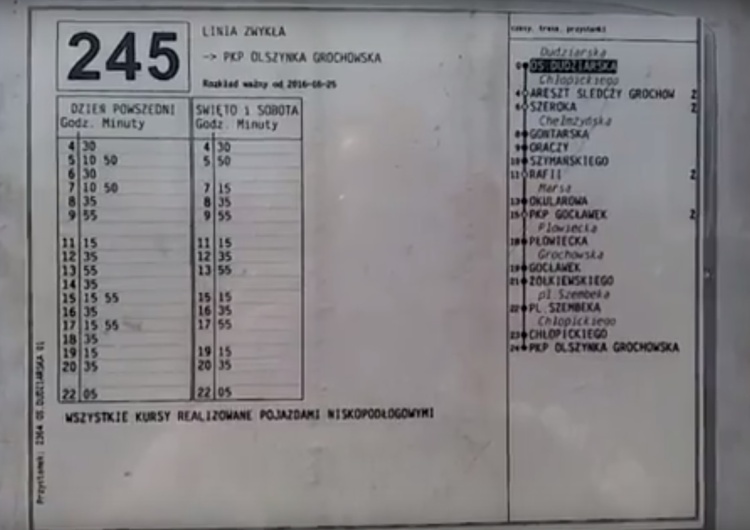 245
LINIA ZWYKŁA
-> PKP OLSZYNKA GROCHOWSKA
Rozkład ważny od 2016-06-25
DZIEŃ POWSZEDNI
Godz. Minuty
4 30
5 10 50
6 30
7 10 50
8 35
9 55
11 15
12 35
13 55
14 35
15 15 55
16 35
17 15 55
18 35
19 15
20 35
22 05
ŚWIĘTO i SOBOTA
Godz. Minuty
4 30
5 50
7 15
8 35
9 55
11 15
12 35
13 55
15 15
16 35
17 55
19 15
20 35
22 05
WSZYSTKIE KURSY REALIZOWANE POJAZDAMI NISKOPODŁOGOWYMI
Przystanek: 2364 OS.DUDZIARSKA 01
trasa, przystanki
Dudziarska
0 OS.DUDZIARSKA
Chłopickiego
4 ARESZT ŚLEDCZY GROCHÓW Z
6 SZEROKA Z
Chełmżyńska
8 GONTARSKA
9 ORACZY
10 SZYMAŃSKIEGO
11 RAFII Z
Marsa
13 OKULAROWA
15 PKP GOCŁAWEK Z
Płowiecka
18 PŁOWIECKA
Grochowska
19 GOCŁAWEK
21 ŻÓŁKIEWSKIEGO
pl.Szembeka
22 PL.SZEMBEKA
Chłopickiego
23 CHŁOPICKIEGO
24 PKP OLSZYNKA GROCHOWSKA